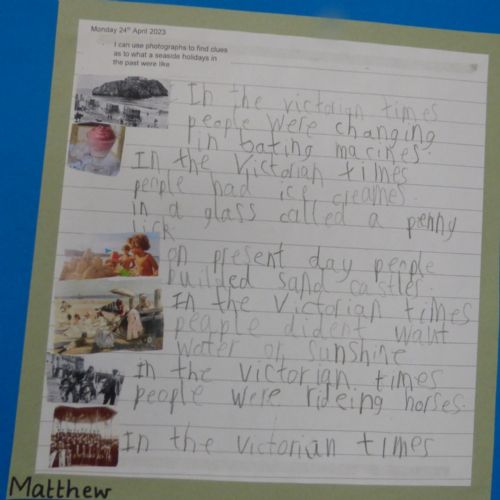 Monday 24th April 2023
I can use photographs to find clues
as to what a seaside holidays in
the past were like
In the victorian times
people were changing
in bating macines.
In the Victorian times
people had ice creames.
in a glass called a penny
lick
on present day people
builded sand castles.
In the Victorian times
people dident want
water or sunshine
in the victorian times
people were rideing horses.
In the victorian times
Matthew